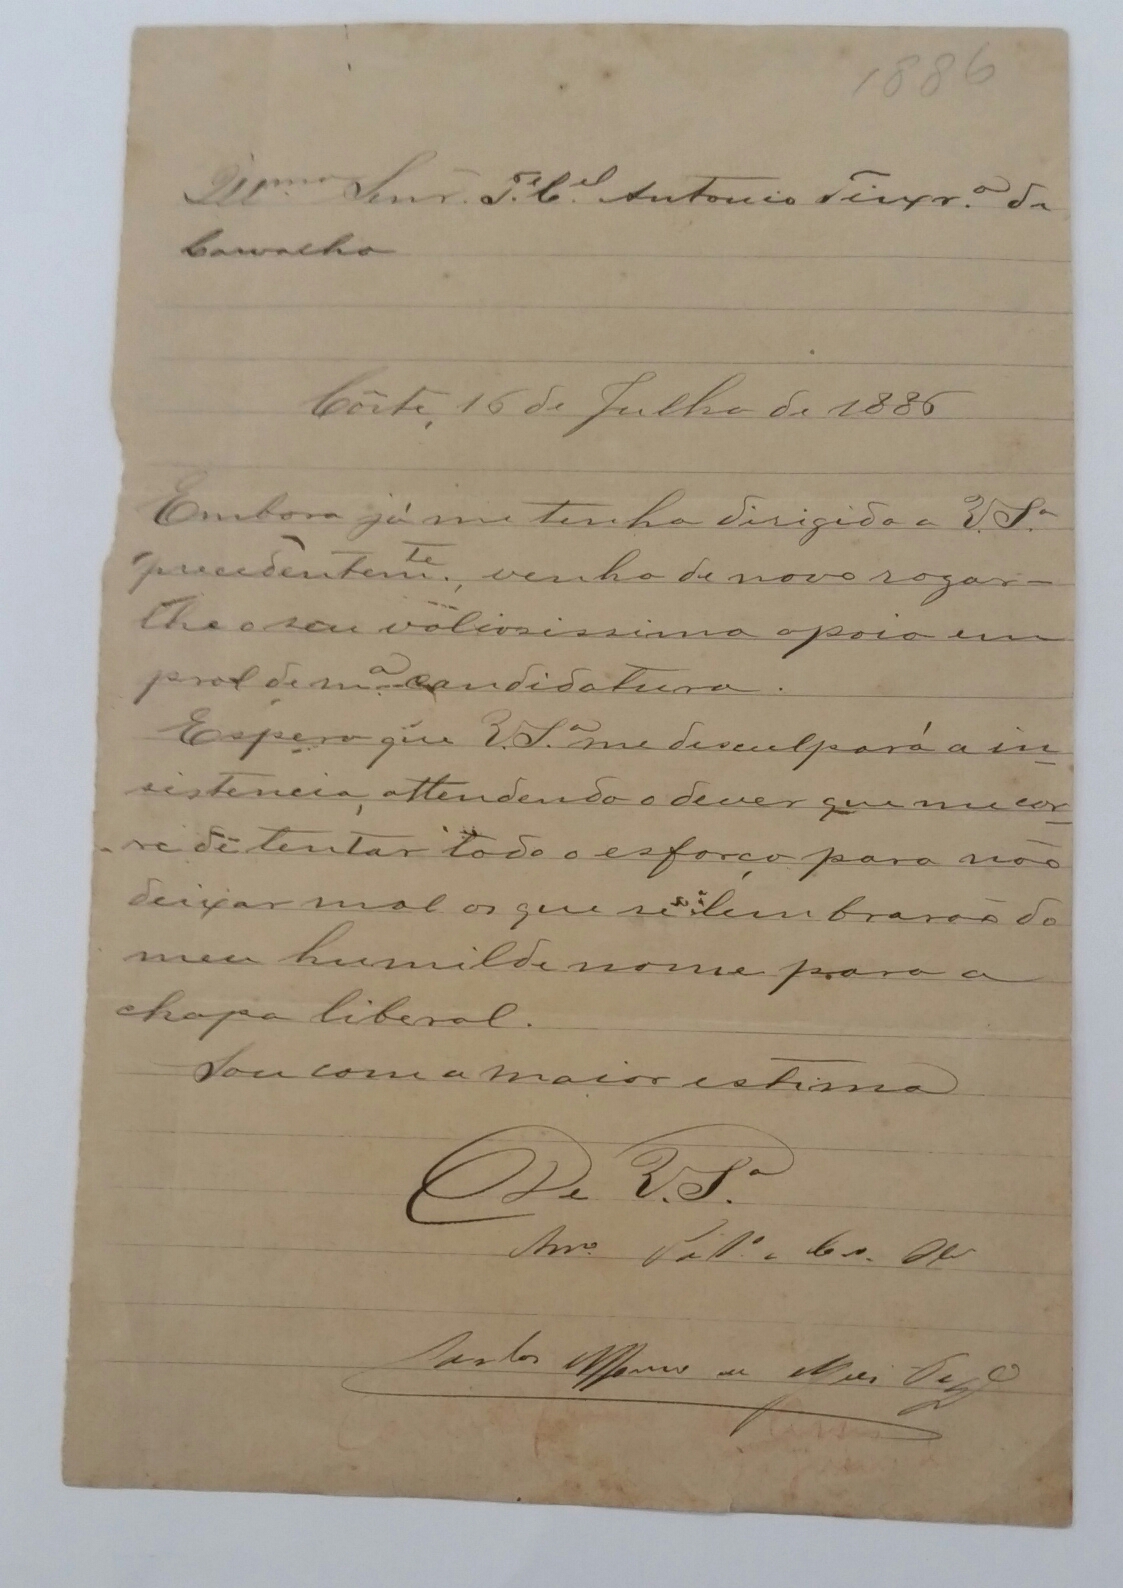 1886
Illmo Snr. Te. Cel. Antonio Teixr.a de
Carvalho
Côrte, 16 de Julho de 1886
Embora já me tenha dirigido a V.S.a
precedentemte., venho de novo rogar-
lhe o seu valiosissimo apoio em
prol de m.a candidatura.
Espero que V.S.a me desculpará a in-
sistencia, attendendo o dever que me cor-
re de tentar todo o esforço para não
deixar mal os que se lembrarão do
meu humilde nome para a
chapa liberal.
Sou com a maior estima
De V.S.a
Am.o
Carlos Affonso de